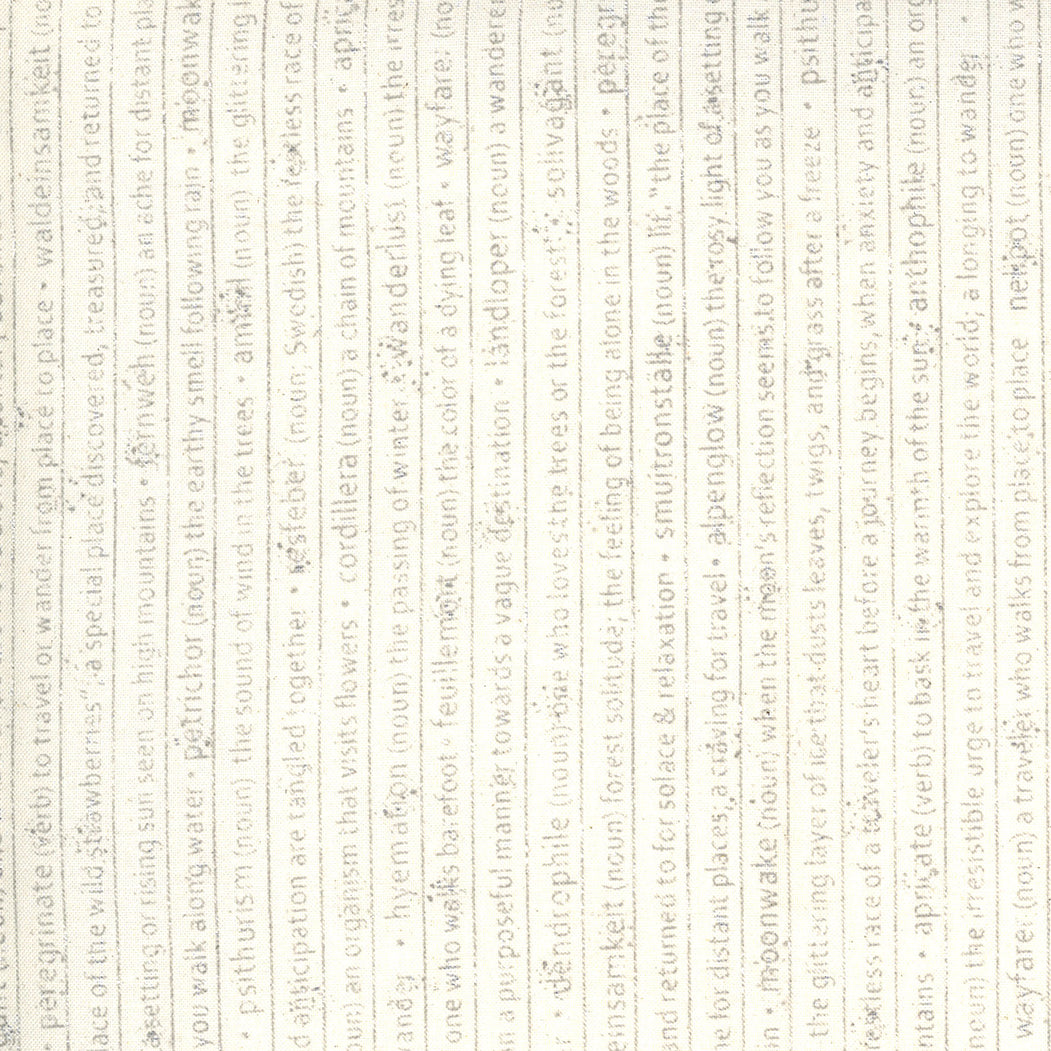 • peregrinate (verb) to travel or wander from place to place • waldeinsamkeit (no
lace of the wild strawberries", a special place discovered, treasured, and returned to
a setting or rising sun seen on high mountains • fernweh (noun) an ache for distant pla
you walk along water • petrichor (noun) the earthy smell following rain • moonwak
• psithurism (noun) the sound of wind in the trees • amird (noun) the glittering l
d anticipation are tangled together • resfeber (noun, Swedish) the restless race of
oun) an organism that visits flowers • cordillera (noun) a chain of mountains • apric
wander • hyemation (noun) the passing of winter • wanderlust (noun) the irres
one who walks barefoot • feuillemort (noun) the color of a dying leaf • wayfarer (no
in a purposeful manner towards a vague destination • landloper (noun) a wanderer
r • dendrophile (noun) one who loves the trees or the forest • solivagant (no
einsamkeit (noun) forest solitude; the feeling of being alone in the woods • peregr
and returned to for solace & relaxation • smultronställe (noun) lit. "the place of the
e for distant places; a craving for travel • alpenglow (noun) the rosy light of a setting
n • moonwake (noun) when the moon's reflection seems to follow you as you walk
the glittering layer of ice that dusts leaves, twigs, and grass after a freeze • psithu
restless race of a traveler's heart before a journey begins, when anxiety and anticipa
ntains • apricate (verb) to bask in the warmth of the sun • anthophile (noun) an org
noun) the irresistible urge to travel and explore the world; a longing to wander •
wayfarer (noun) a traveler who walks from place to place nelipot (noun) one who w